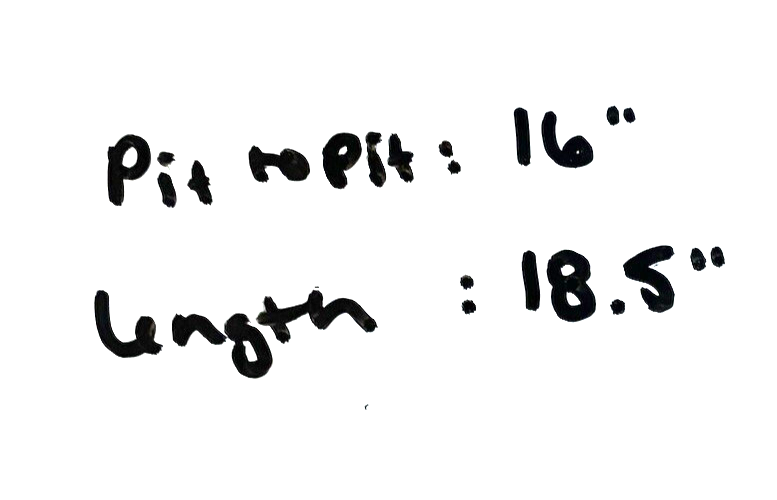 Pit to Pit : 16"
Length : 18.5"